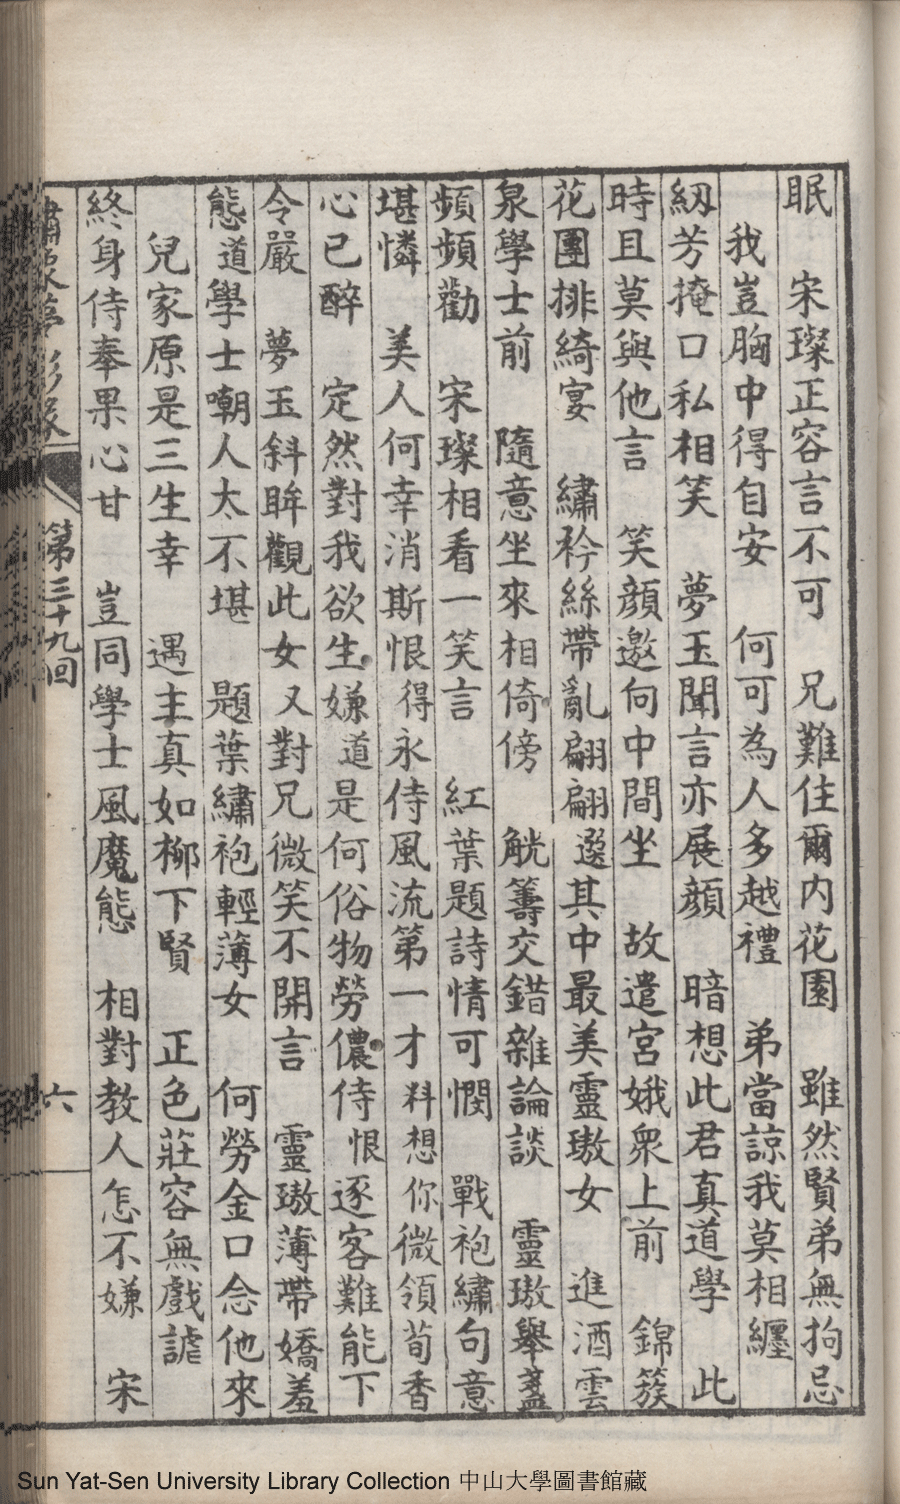 眠　宋璨正容言不可　兄難住爾内花園　雖然賢弟無拘忌
我豈胸中得自安　何可為人多越禮　弟當諒我莫相纒
紉芳掩口私相笑　夢玉聞言亦展顔　暗想此君真道學　此
時且莫與他言　笑顔邀向中間坐　故遣宮娥衆上前　錦簇
花團排綺宴　繡衿絲帶亂翩翩　選其中最美靈璈女　進酒雲
泉學士前　隨意坐來相倚傍　觥籌交錯雜論談　靈璈舉盞
頻頻勸　宋璨相看一笑言　紅葉題詩情可憫　戰袍繡句意
堪憐　美人何幸消斯恨　得永侍風流第一才　料想你微領荀香
心已醉　定然對我欲生嫌　道是何俗物勞儂侍　恨逐客難能下
令嚴　夢玉斜眸觀此女　又對兄微笑不開言　靈璈薄帶嬌羞
態　道學士嘲人太不堪　題葉繡袍輕薄女　何勞金口念他來
兒家原是三生幸　遇主真如柳下賢　正色莊容無戲謔
終身侍奉果心甘　豈同學士風魔態　相對教人怎不嫌　宋
第三十九回　六
Sun Yat-Sen University Library Collection 中山大學圖書館藏